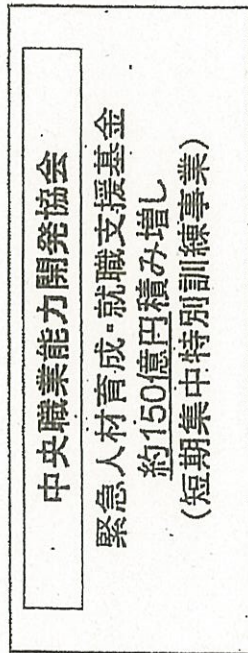 中央職業能力開発協会
緊急人材育成・就職支援基金
約150億円積み増し
(短期集中特別訓練事業)